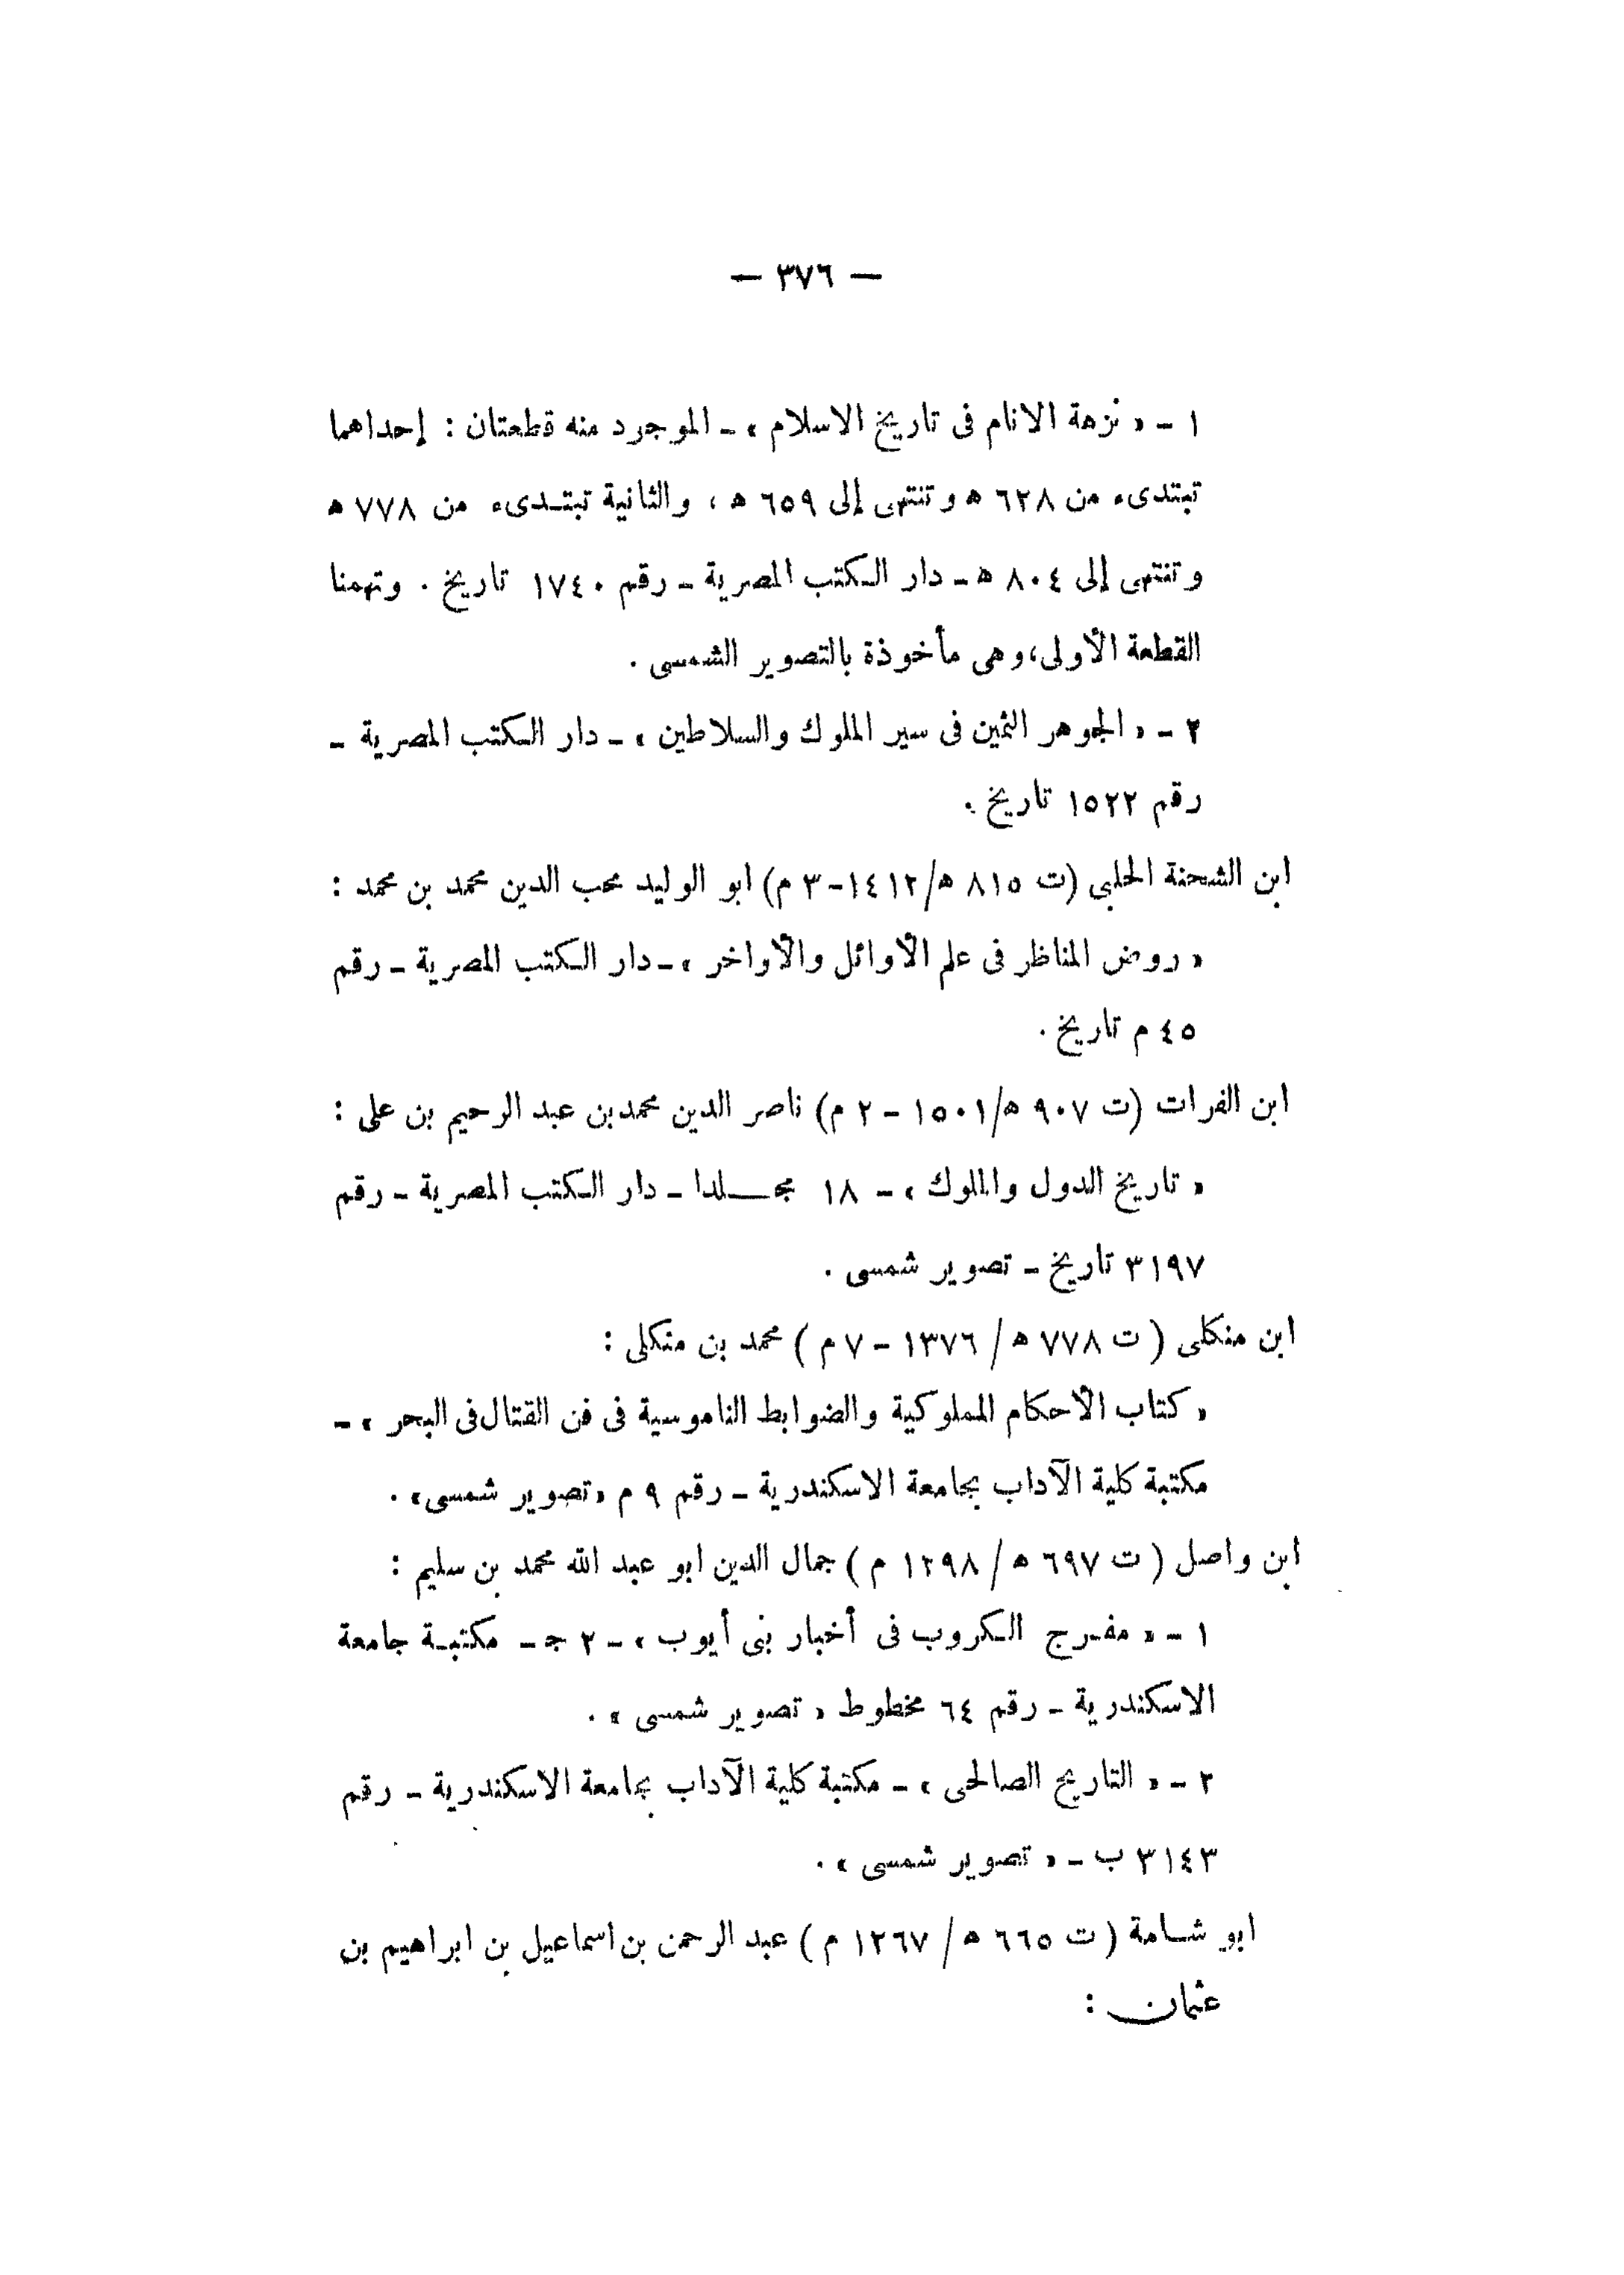 — ٣٧٦ —
١ - « نزهة الانام فى تاريخ الاسلام » - الموجرد منه قطعتان : إحداهما
تبتدىء من ٦٢٨ ه وتنتهى إلى ٦٥٩ ه ، والثانية تبتدىء من ٧٧٨ ه
وتنتهى إلى ٨٠٤ ه - دار الكتب المصرية - رقم ١٧٤٠ تاريخ . وتهمنا
القطعة الأولى، وهى مأخوذة بالتصوير الشمسى .
٢ - « الجوهر الثمين فى سير الملوك والسلاطين » - دار الكتب المصرية -
رقم ١٥٢٢ تاريخ .
ابن الشحنة الحلبى (ت ٨١٥ ه/١٤١٢-٣ م) ابو الوليد محب الدين محمد بن محمد :
« روض المناظر فى علم الأوائل والأواخر » - دار الكتب المصرية - رقم
٤٥ م تاريخ .
ابن الفرات (ت ٩٠٧ ه/١٥٠١ - ٢ م) ناصر الدين محمد بن عبد الرحيم بن على :
« تاريخ الدول والملوك » - ١٨ مجلدا - دار الكتب المصرية - رقم
٣١٩٧ تاريخ - تصوير شمسى .
ابن منكلى ( ت ٧٧٨ ه / ١٣٧٦ - ٧ م ) محمد بن منكلى :
« كتاب الأحكام المملوكية والضوابط الناموسية فى فن القتال فى البحر » -
مكتبة كلية الآداب بجامعة الاسكندرية - رقم ٩ م «تصوير شمسى» .
ابن واصل ( ت ٦٩٧ ه / ١٢٩٨ م ) جمال الدين ابو عبد الله محمد بن سليم :
١ - « مفرج الكروب فى أخبار بنى أيوب » - ٢ ج - مكتبة جامعة
الاسكندرية - رقم ٦٤ مخطوط « تصوير شمسى » .
٢ - « التاريخ الصالحى » - مكتبة كلية الآداب بجامعة الاسكندرية - رقم
٣١٤٣ ب - « تصوير شمسى » .
ابو شامة ( ت ٦٦٥ ه / ١٢٦٧ م ) عبد الرحمن بن اسماعيل بن ابراهيم بن
عثمان :